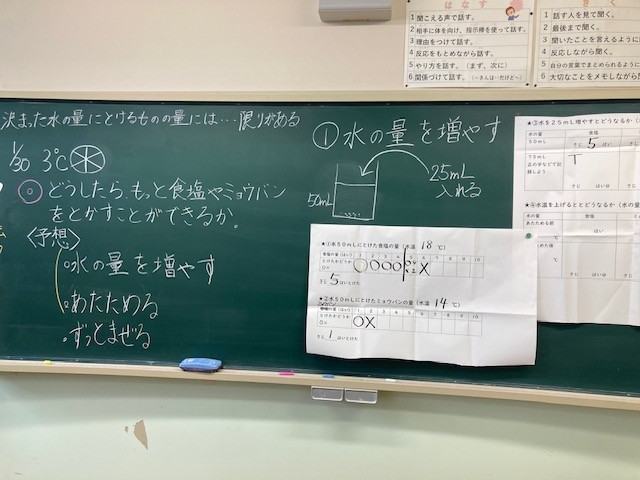 はなす
1 聞こえる声で話す。
2 相手に体を向け、指示棒を使って話す。
3 理由をつけて話す。
4 反応をもとめながら話す。
5 やり方を話す。(まず、次に)
6 関係づけて話す。(〜さんは…だけど〜)
きく
1 話す人を見て聞く。
2 最後まで聞く。
3 聞いたことを言えるように
4 反応しながら聞く。
5 自分の言葉でまとめられるように
6 大切なことをメモしなが
決まった水の量にとけるものの量には…限りがある
1/30 3℃
◎どうしたら、もっと食塩やミョウバン
をとかすことができるか。
<予想>
。水の量を増やす
。あたためる
。ずっとまぜる
① 水の量を増やす
50mL
25mL
入れる
★①水50mLにとけた食塩の量(水温 18 ℃)
食塩の量(はい) 1 2 3 4 5 6 7 8 9 10
とけたかどうか
○× ○ ○ ○ ○ X
さじ 5 はいとけた
★②水50mLにとけたミョウバンの量(水温 14 ℃)
1 2 3 4 5 6 7 8 9 10
とけたかどうか
○× ○ X
さじ 1 はいとけた
★③水を25mL増やすとどうなるか(
水の量 食塩
50mL 5 はい
75mL
正の字などで記
録しよう
さじ はい
さじ
★④水温を上げるとどうなるか(水の量
水の温度 食塩
あたためる前
℃ さじ はい
℃ さじ はい さじ